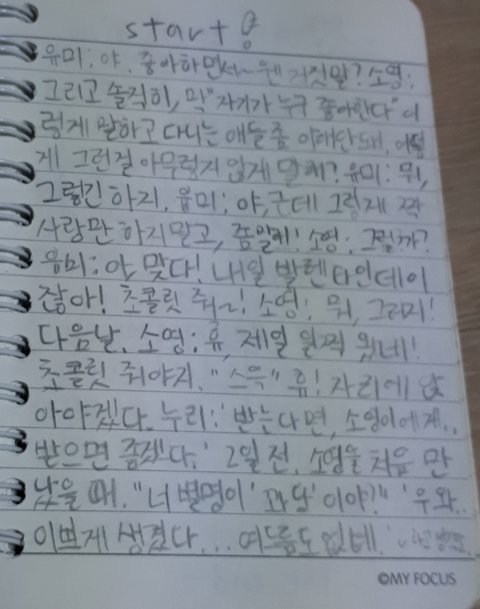 start
유미: 야, 좋아하면서~ 웬 거짓말? 소영:
그리고 솔직히, 막 "자기가 누구 좋아한다" 이
렇게 말하고 다니는 애들 좀 이해 안돼. 어떻
게 그런걸 아무렇지 않게 말해? 유미: 뭐,
그렇긴 하지. 유미: 야, 근데 그렇게 짝
사랑만 하지말고, 좀 알려! 소영: 그럴까?
유미: 아, 맞다! 내일 발렌타인데이
잖아! 초콜릿 줘~! 소영: 뭐, 그러지!
다음날. 소영: 휴, 제일 일찍 왔네!
초콜릿 줘야지. "스윽" 휴! 자리에 앉
아야겠다. 누리: '받는다면, 소영이에게..
받으면 좋겠다.' 2일 전. 소영을 처음 만
났을 때. "너 별명이 '꽈당'이야?" '우와..
이쁘게 생겼다... 여드름도 없네.'
©MY FOCUS